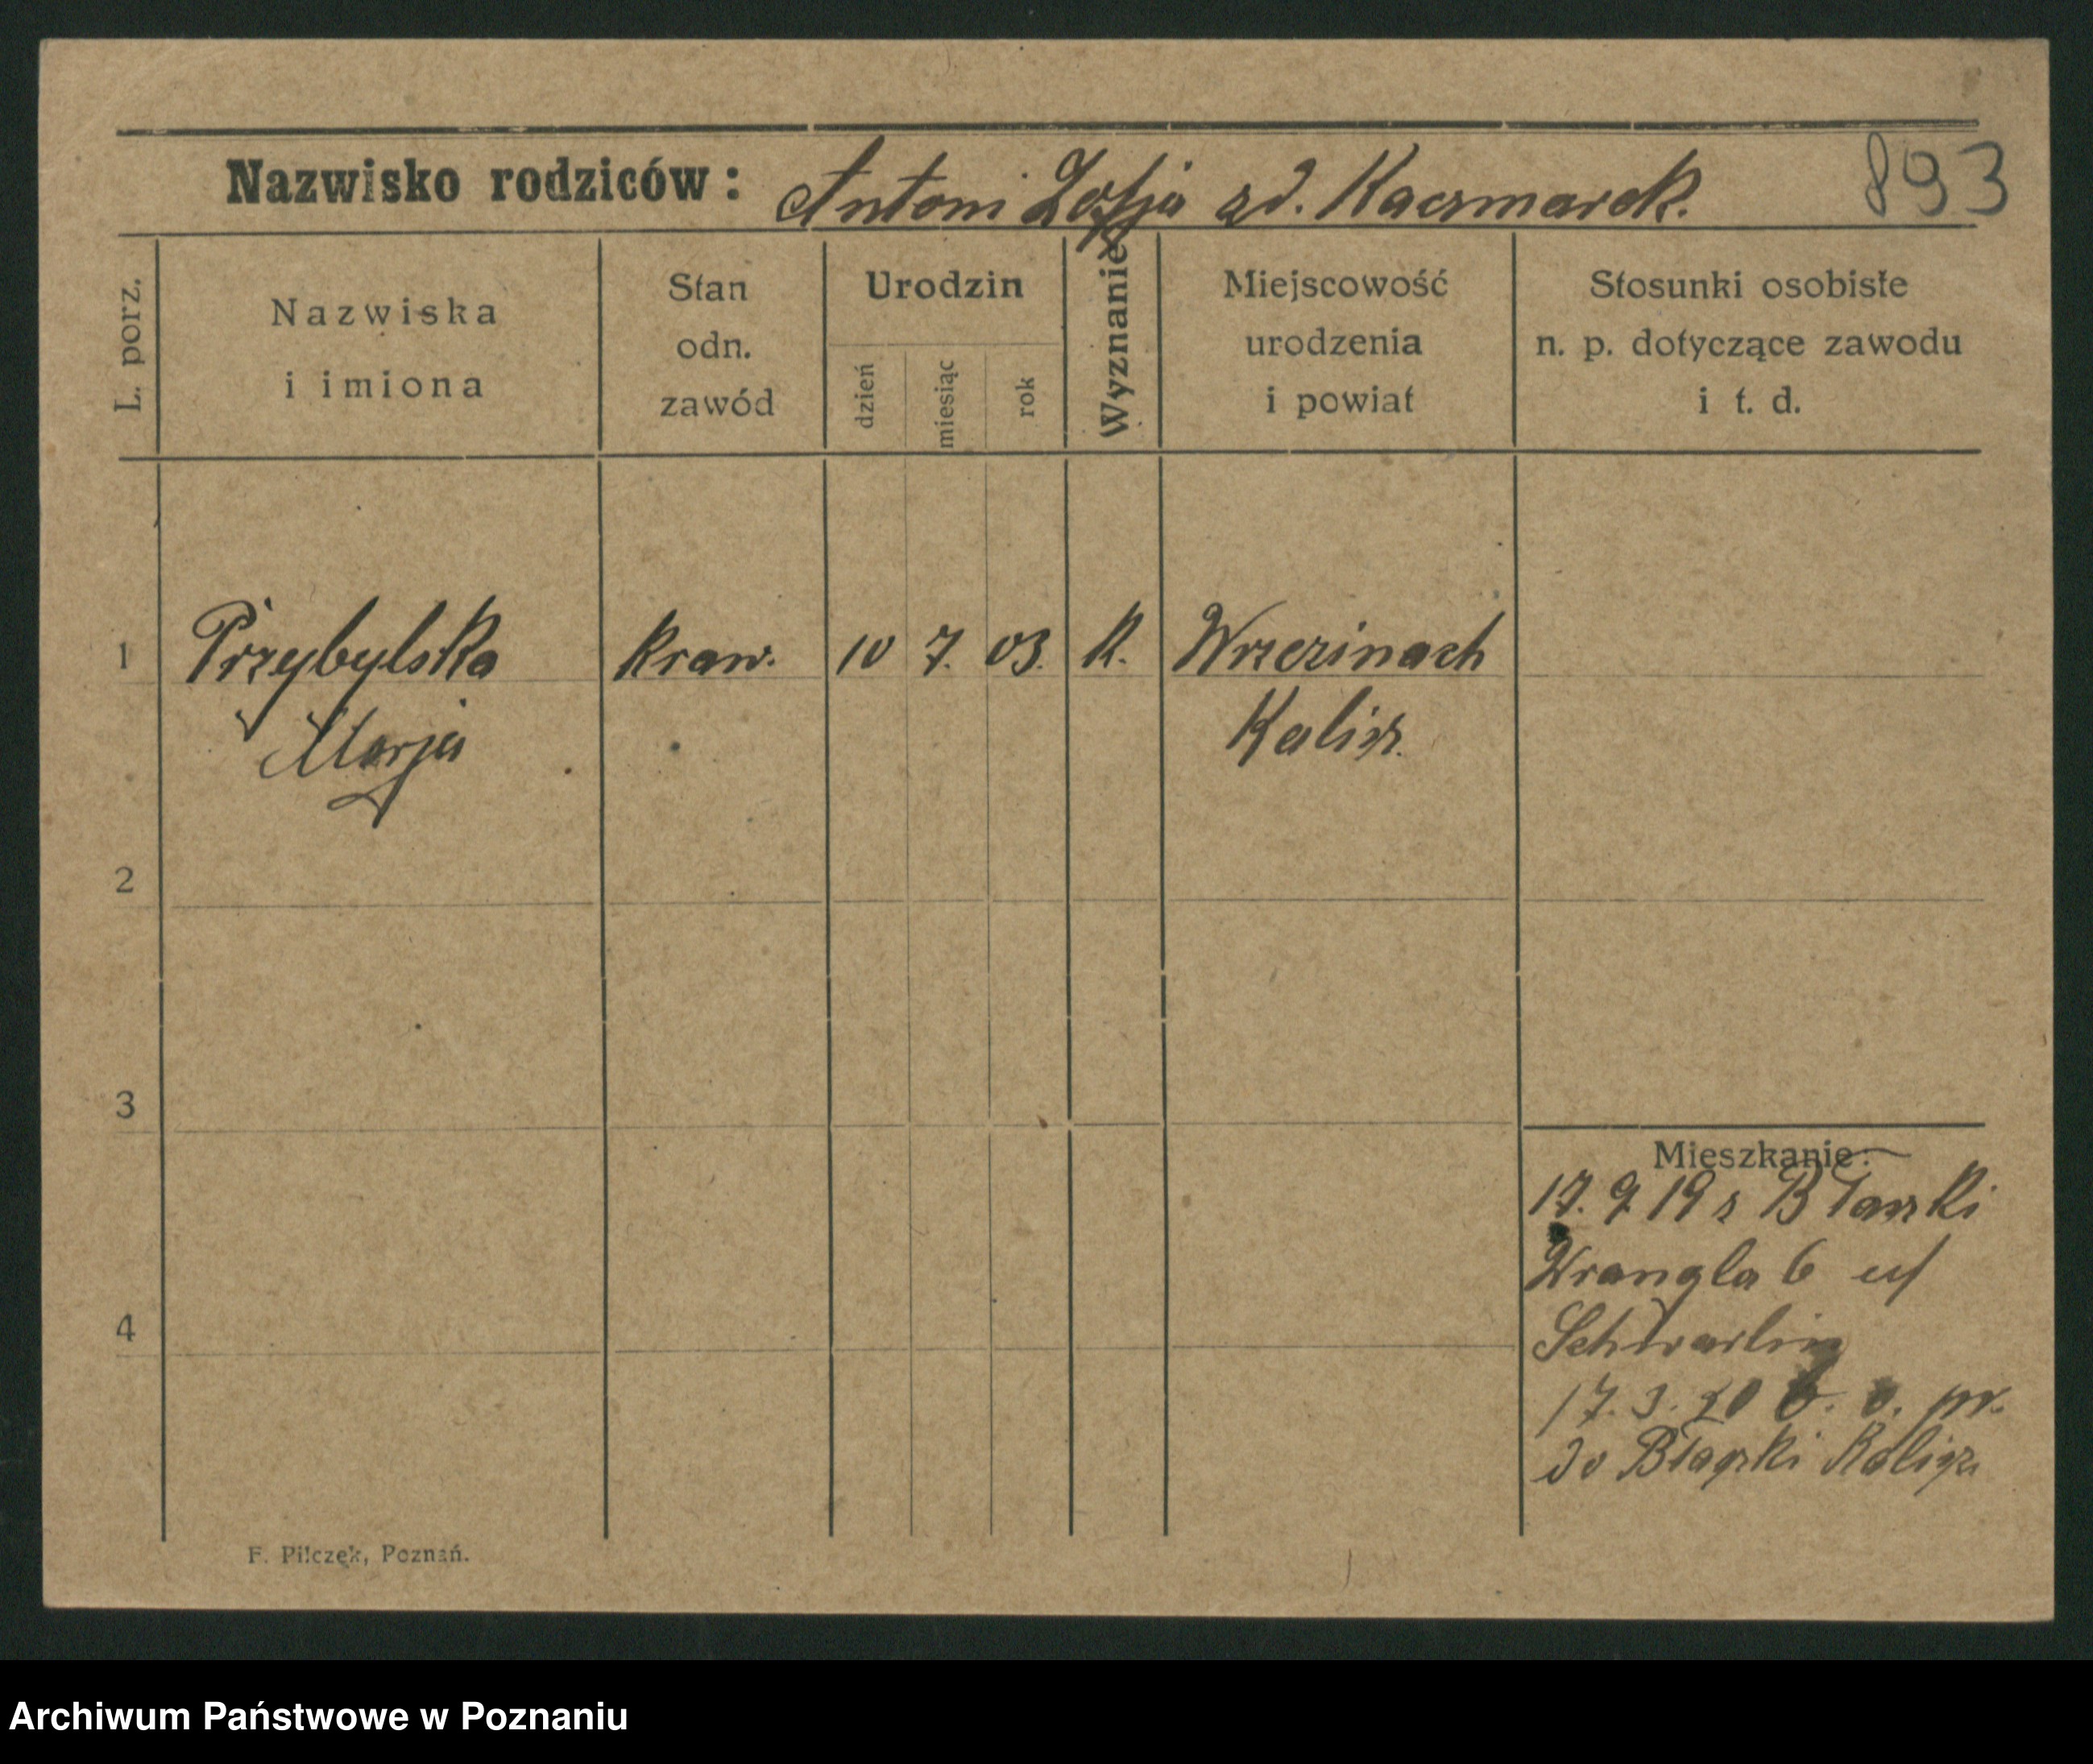 893
Nazwisko rodziców: Antoni Zofja zd. Kaczmarek.
L. porz.
Nazwiska
i imiona
Stan
odn.
zawód
Urodzin
dzień
miesiąc
rok
Wyznanie
Miejscowość
urodzenia
i powiat
Stosunki osobiste
n. p. dotyczące zawodu
i t. d.
1 Przybylska kraw. 10 7. 03. K.
Marja Kalisz.
2
3
4
Mieszkanie:
17. 9 19 z Błaszki
Wrangla 6
17. 3. 20
do Błaszki Kalisz
F. Pilczek, Poznań.
Archiwum Państwowe w Poznaniu